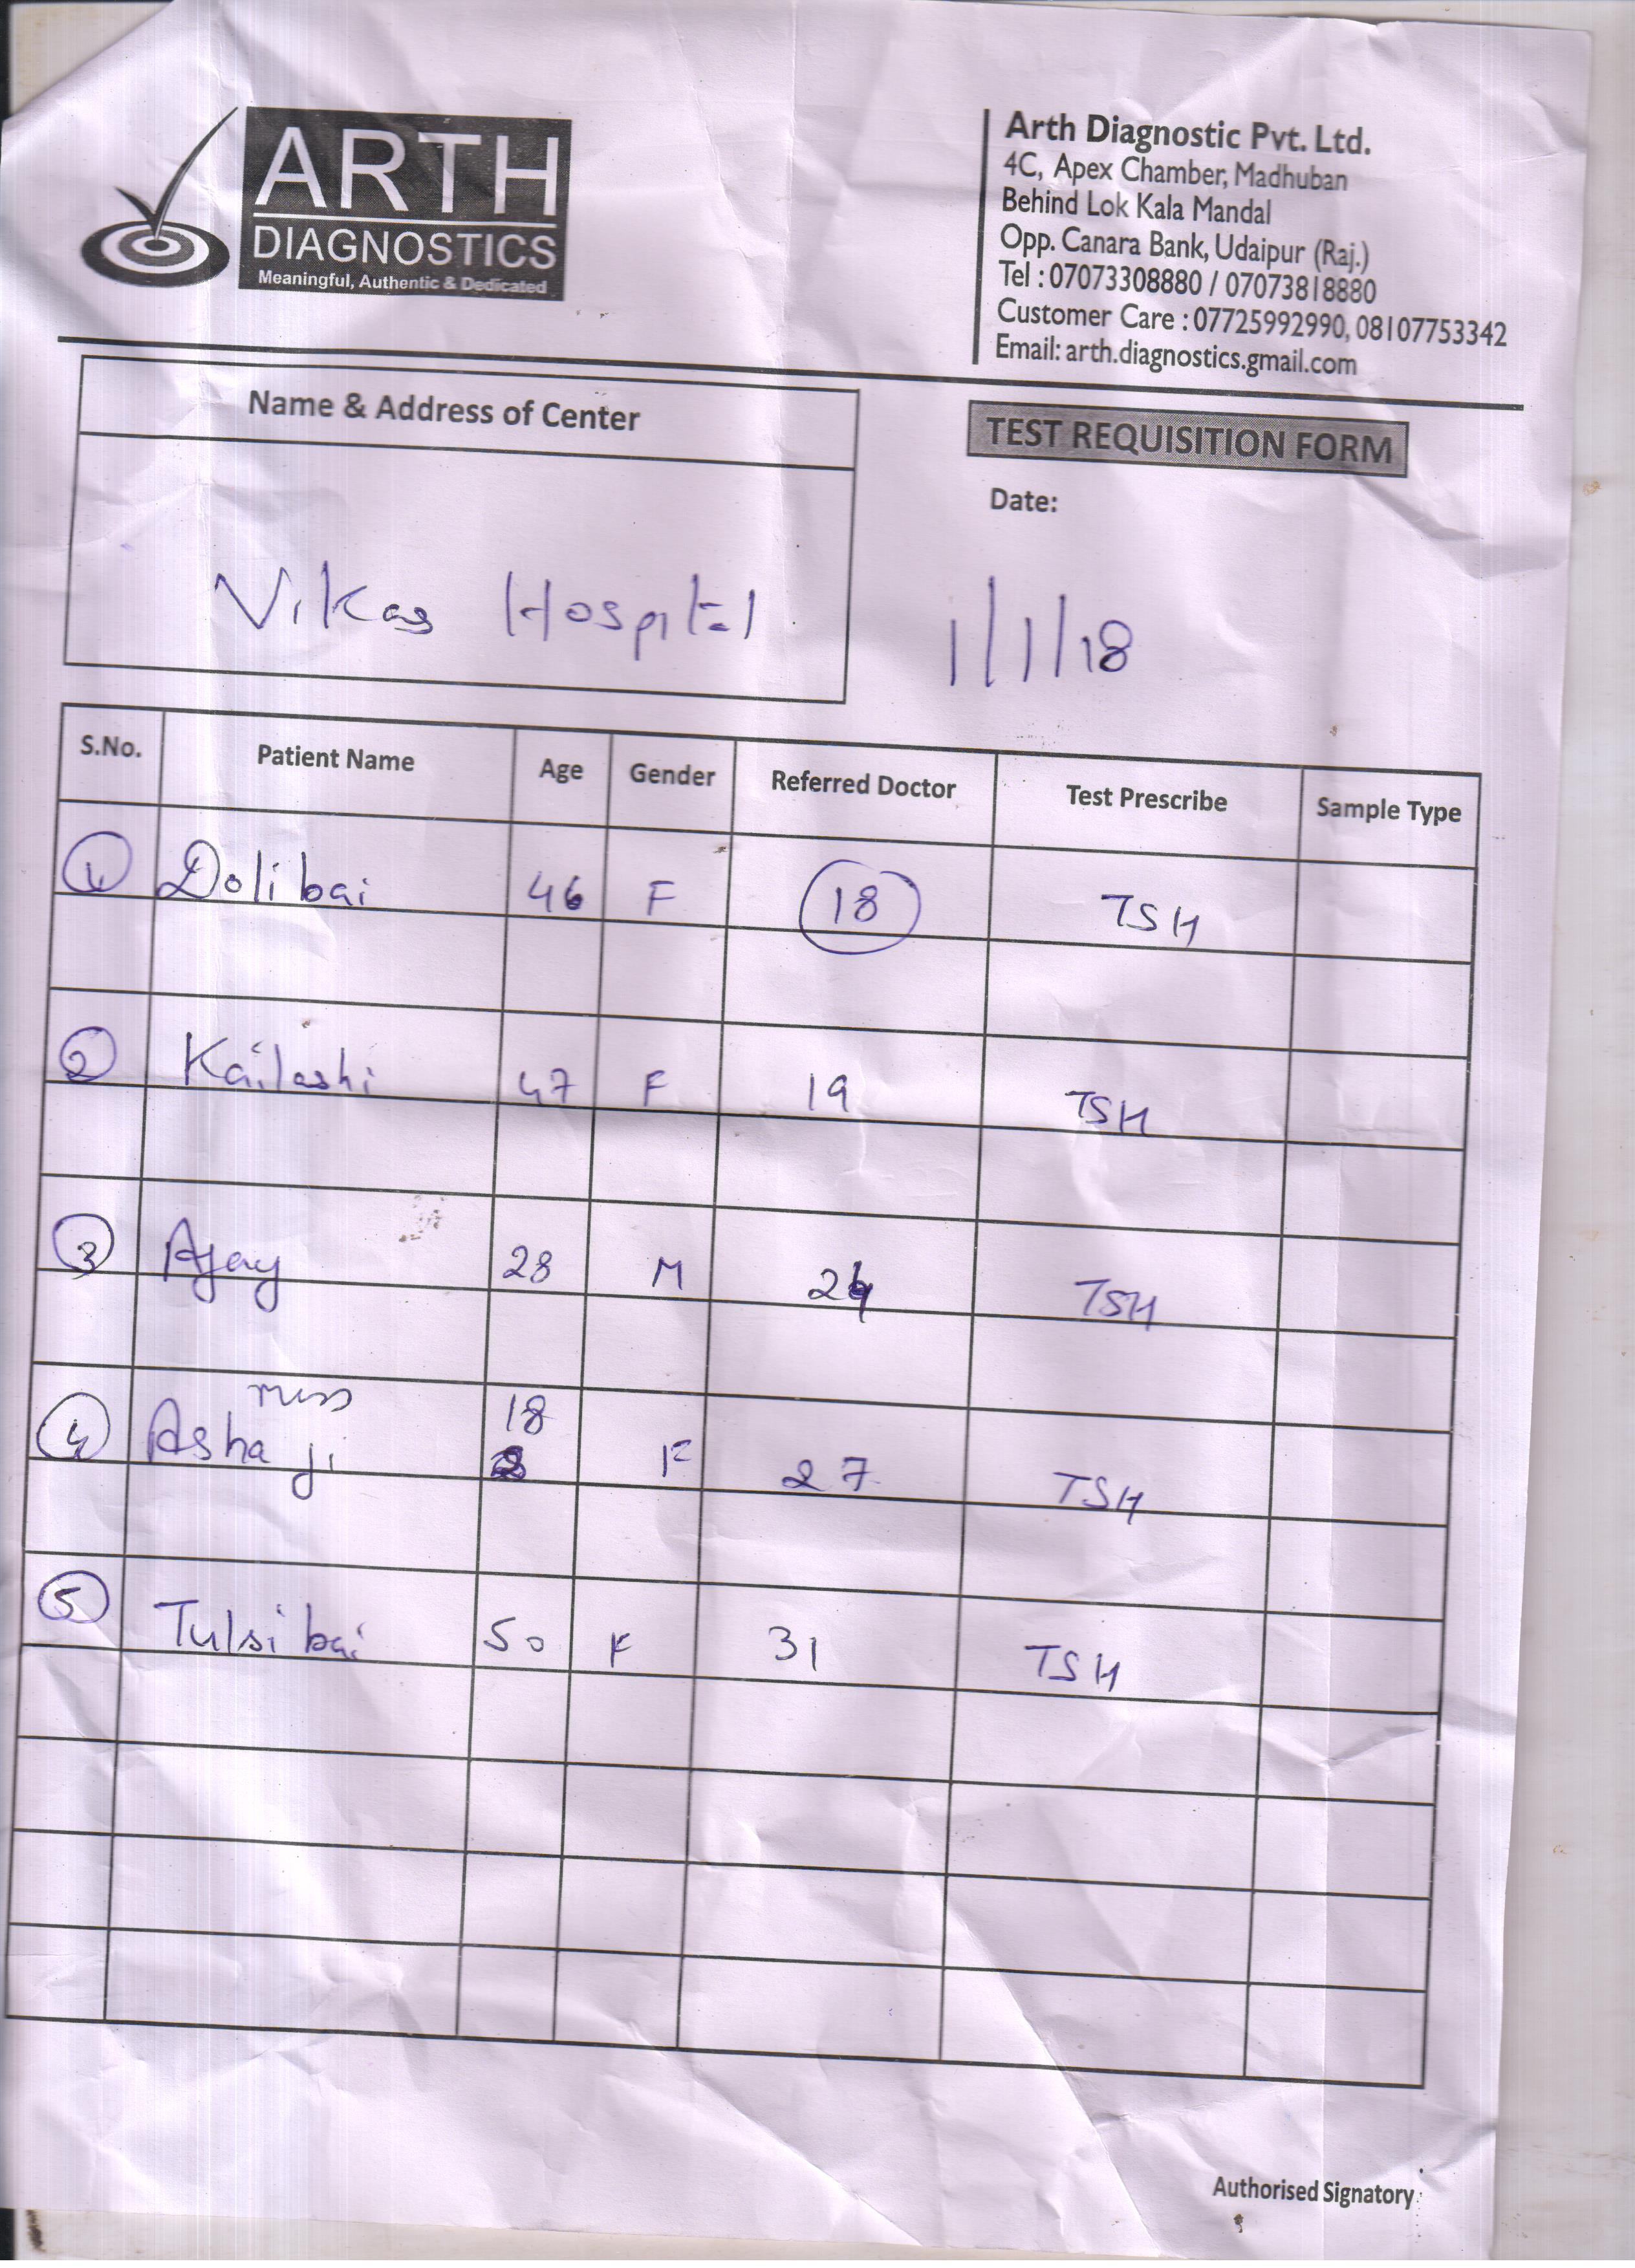 ARTH
DIAGNOSTICS
Meaningful, Authentic & Dedicated
Arth Diagnostic Pvt. Ltd.
4C, Apex Chamber, Madhuban
Behind Lok Kala Mandal
Opp. Canara Bank, Udaipur (Raj.)
Tel : 07073308880 / 07073818880
Customer Care : 07725992990, 08107753342
Email: arth.diagnostics.gmail.com
Name & Address of Center
Vikas Hospital
TEST REQUISITION FORM
Date:
1/1/18
S.No. Patient Name Age Gender Referred Doctor Test Prescribe Sample Type
1 Dolibai 46 F 18 TSH
2 Kailashi 47 F 19 TSH
3 Ajay 28 M TSH
miss 18
4 Asha ji F 27 TSH
5 Tulsi bai 50 F 31 TSH
Authorised Signatory